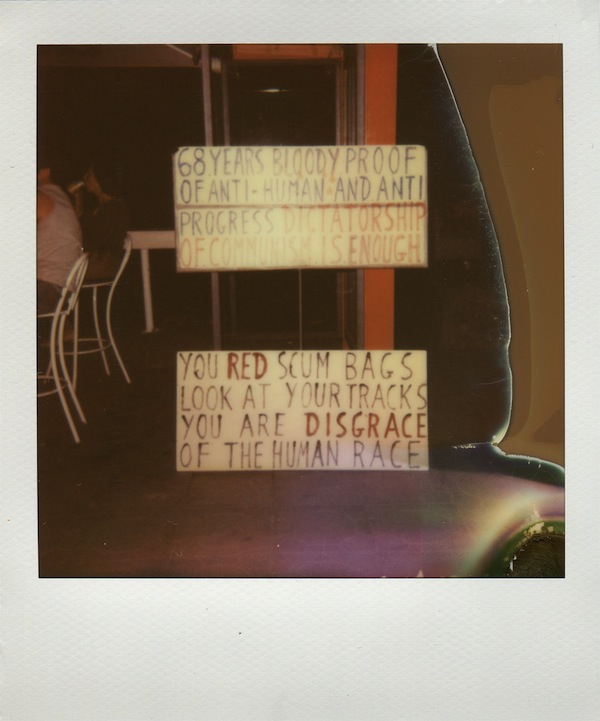 68 YEARS BLOODY PROOF
OF ANTI-HUMAN AND ANTI
PROGRESS DICTATORSHIP
OF COMMUNISM IS ENOUGH
YOU RED SCUM BAGS
LOOK AT YOUR TRACKS
YOU ARE DISGRACE
OF THE HUMAN RACE